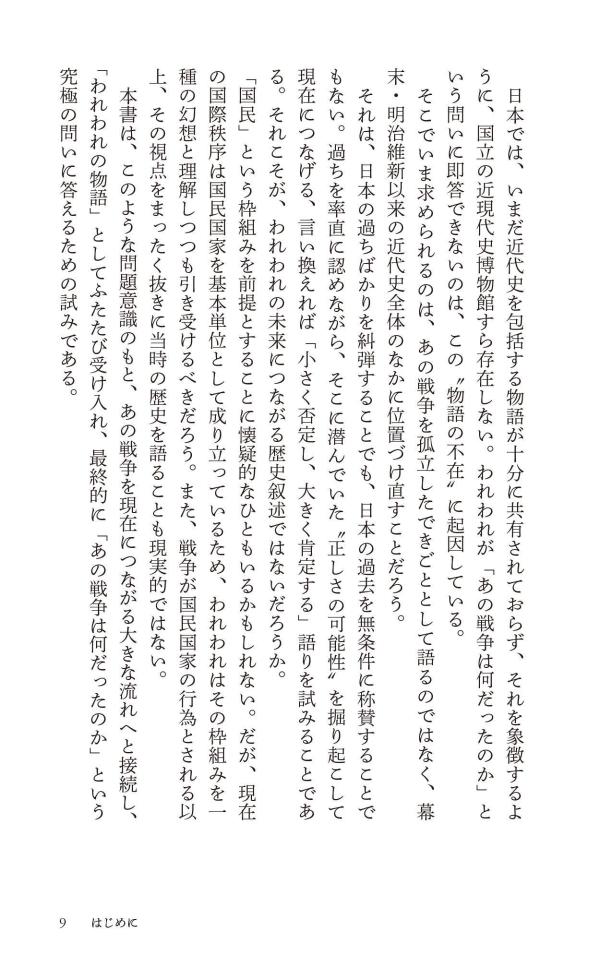 日本では、いまだ近代史を包括する物語が十分に共有されておらず、それを象徴するよ
うに、国立の近現代史博物館すら存在しない。われわれが「あの戦争は何だったのか」と
いう問いに即答できないのは、この〝物語の不在〟に起因している。
　そこでいま求められるのは、あの戦争を孤立したできごととして語るのではなく、幕
末・明治維新以来の近代史全体のなかに位置づけ直すことだろう。
　それは、日本の過ちばかりを糾弾することでも、日本の過去を無条件に称賛することで
もない。過ちを率直に認めながら、そこに潜んでいた〝正しさの可能性〟を掘り起こして
現在につなげる、言い換えれば「小さく否定し、大きく肯定する」語りを試みることであ
る。それこそが、われわれの未来につながる歴史叙述ではないだろうか。
　「国民」という枠組みを前提とすることに懐疑的なひともいるかもしれない。だが、現在
の国際秩序は国民国家を基本単位として成り立っているため、われわれはその枠組みを一
種の幻想と理解しつつも引き受けるべきだろう。また、戦争が国民国家の行為とされる以
上、その視点をまったく抜きに当時の歴史を語ることも現実的ではない。
　本書は、このような問題意識のもと、あの戦争を現在につながる大きな流れへと接続し、
「われわれの物語」としてふたたび受け入れ、最終的に「あの戦争は何だったのか」という
究極の問いに答えるための試みである。
9　はじめに